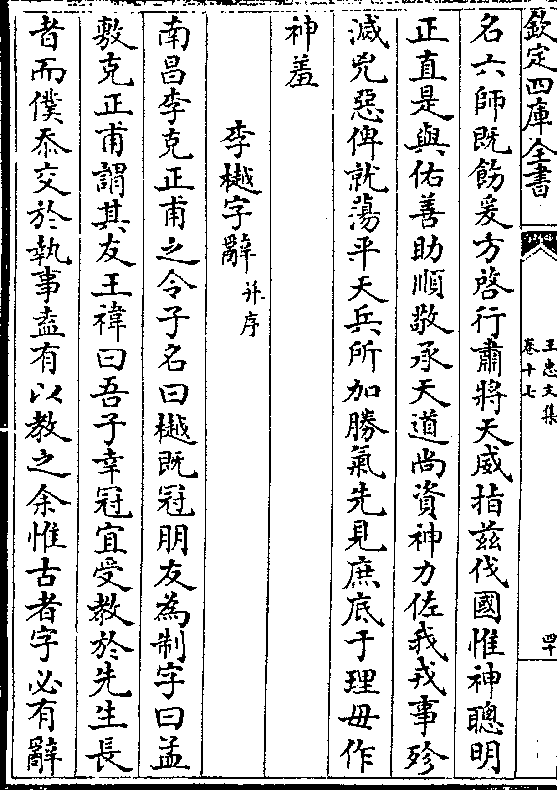 欽定四庫全書
王忠文集
卷十七
四十
名六師既飭爰方啓行肅將天威指兹伐國惟神聰明
正直是與佑善助順敬承天道尚資神力佐我戎事殄
滅兇惡俾就蕩平天兵所加勝氣先見庶底于理毋作
神羞
李樾字辭并序
南昌李克正甫之令子名曰樾既冠朋友為制字曰孟
敷克正甫謂其友王禕曰吾子幸冠宜受教於先生長
者而僕忝交於執事盍有以教之余惟古者字必有辭